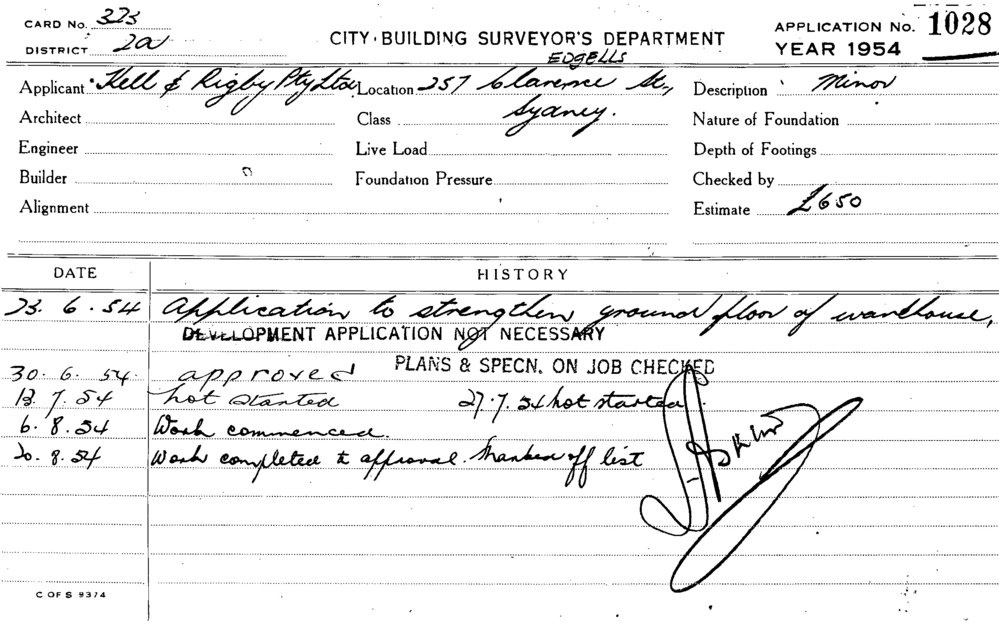 CARD No. 323
DISTRICT 2a
CITY BUILDING SURVEYOR'S DEPARTMENT
APPLICATION No. 1028
YEAR 1954
EDGELLS
Applicant Kell & Rigby Pty Ltd Location 257 Clarence St., Description Minor
Architect Class Sydney. Nature of Foundation
Engineer Live Load Depth of Footings
Builder Foundation Pressure Checked by
Alignment Estimate £650
DATE HISTORY
23.6.54 Application to strengthen ground floor of warehouse,
DEVELOPMENT APPLICATION NOT NECESSARY
PLANS & SPECN. ON JOB CHECKED
30.6.54. approved
13.7.54 Not started 27.7.54 Not started.
6.8.54 Work commenced.
20.8.54 Work completed to approval. Marked off list
C OF S 9374